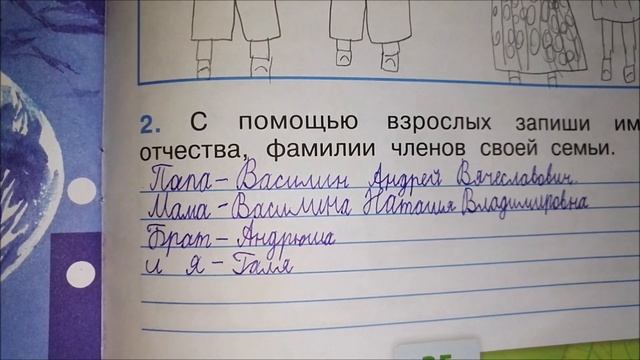 2. С помощью взрослых запиши им
отчества, фамилии членов своей семьи.
Папа – Василин Андрей Вячеславович.
Мама – Василина Наташа Владимировна
Брат – Андрюша
и я – Галя